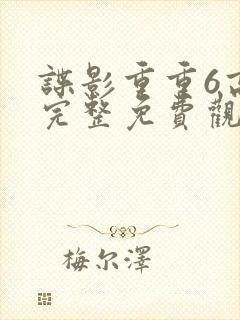 諜影重重6高
完整免費觀
梅尔澤